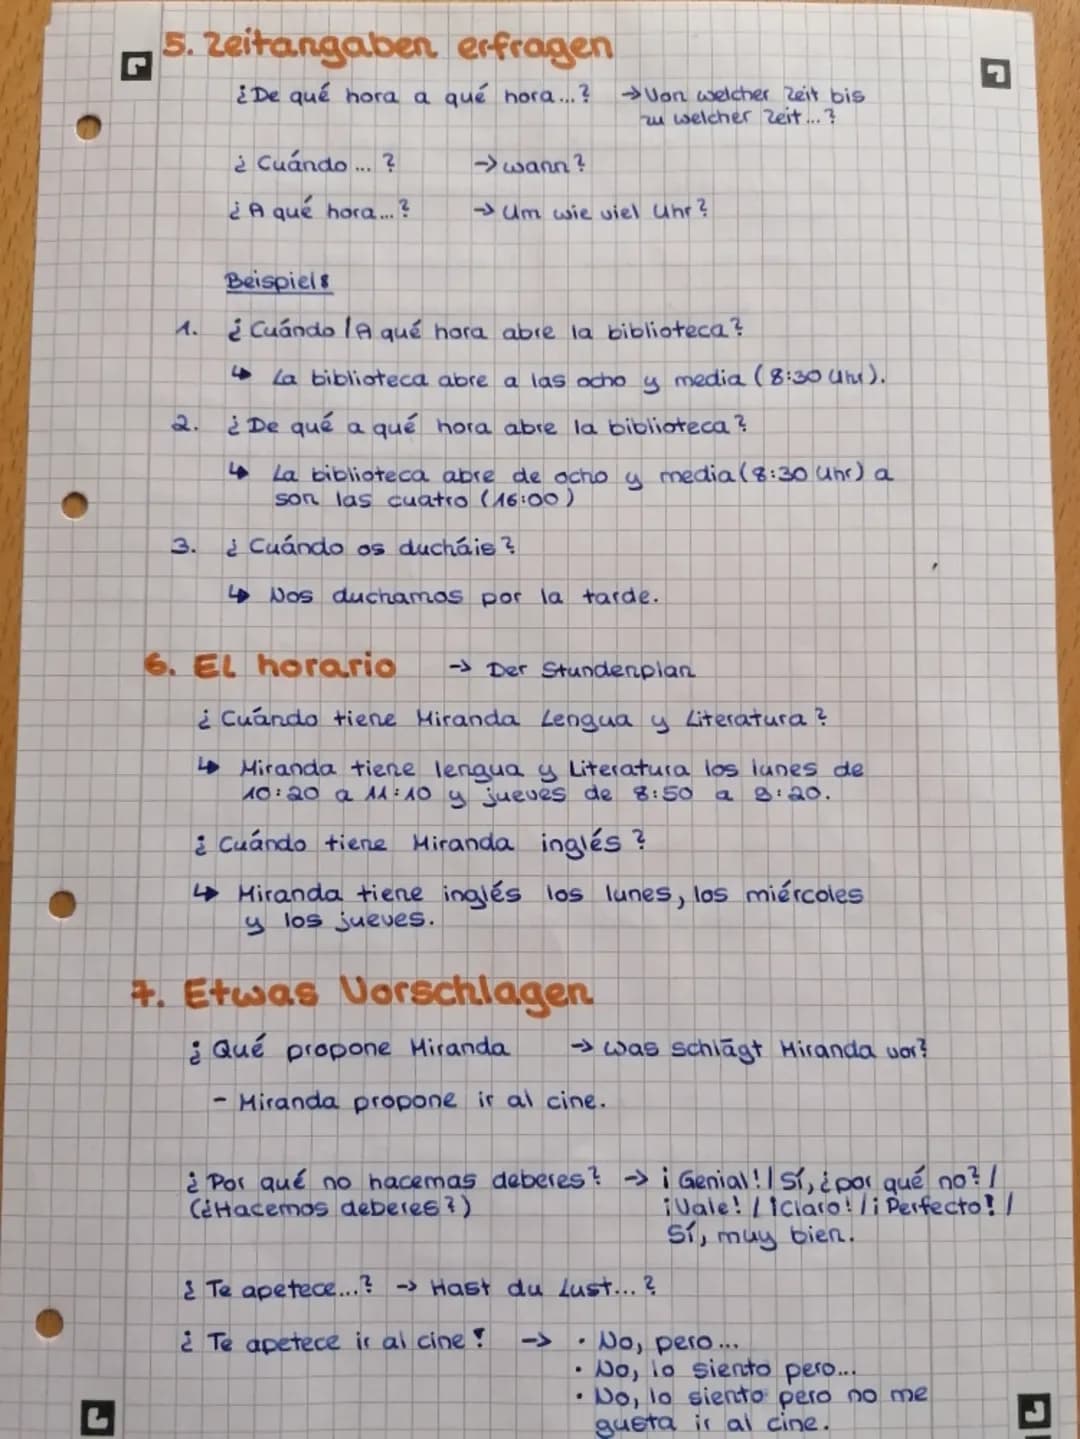 5. Zeitangaben erfragen
¿De qué hora a qué hora...? → Von welcher Zeit bis
zu welcher Zeit...?
¿Cuándo...? → wann?
¿A qué hora...? → Um wie viel Uhr?
Beispiel:
1. ¿Cuándo / A qué hora abre la biblioteca?
↳ La biblioteca abre a las ocho y media (8:30 Uhr).
2. ¿De qué a qué hora abre la biblioteca?
↳ La biblioteca abre de ocho y media (8:30 Uhr) a
son las cuatro (16:00)
3. ¿Cuándo os ducháis?
↳ Nos duchamos por la tarde.
6. El horario → Der Stundenplan
¿Cuándo tiene Miranda Lengua y Literatura?
↳ Miranda tiene lengua y Literatura los lunes de
10:20 a 11:10 y jueves de 8:50 a 9:20.
¿Cuándo tiene Miranda inglés?
↳ Miranda tiene inglés los lunes, los miércoles
y los jueves.
7. Etwas Vorschlagen
¿Qué propone Miranda → was schlägt Miranda vor?
- Miranda propone ir al cine.
¿Por qué no hacemas deberes? → ¡Genial! / Sí, ¿por qué no? /
(¿Hacemos deberes?) ¡Vale! / ¡Claro! / ¡Perfecto! /
Sí, muy bien.
¿Te apetece...? → Hast du Lust...?
¿Te apetece ir al cine? → · No, pero...
· No, lo siento pero...
· No, lo siento pero no me
gusta ir al cine.